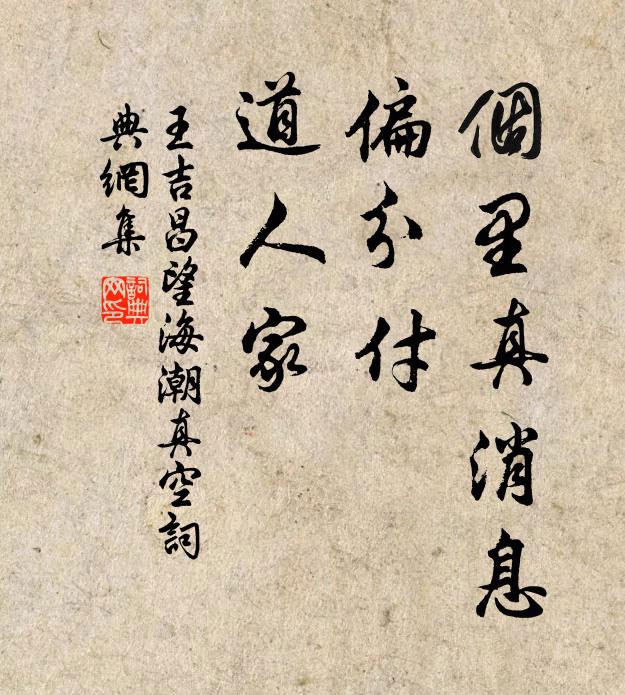 個里真消息
偏分付
道人家
王吉昌望海潮真空詞
典網集
詞典
网印